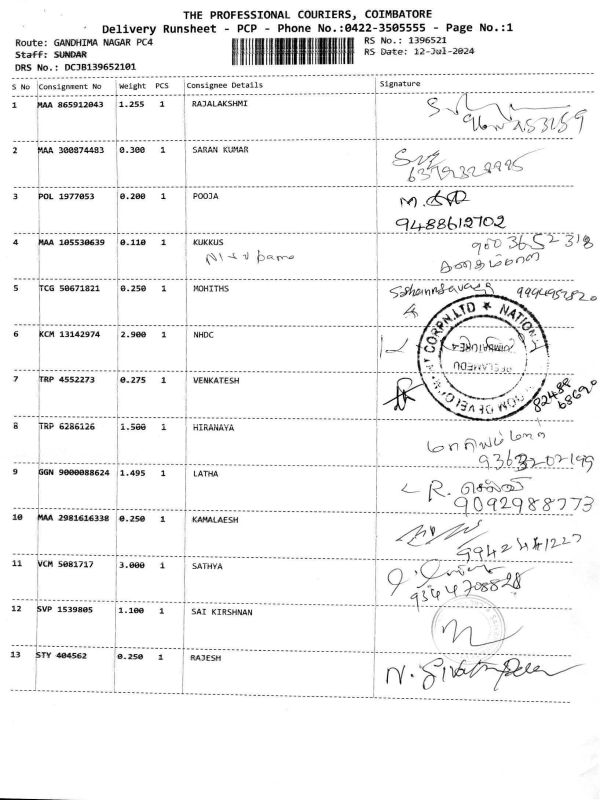 THE PROFESSIONAL COURIERS, COIMBATORE
Delivery Runsheet - PCP - Phone No.:0422-3505555 - Page No.:1
Route: GANDHIMA NAGAR PC4 RS No.: 1396521
Staff: SUNDAR RS Date: 12-Jul-2024
DRS No.: DCJB139652101
S No Consignment No Weight PCS Consignee Details Signature
1 MAA 865912043 1.255 1 RAJALAKSHMI
2 MAA 300874483 0.300 1 SARAN KUMAR
3 POL 1977053 0.200 1 POOJA
9488612702
4 MAA 105530639 0.110 1 KUKKUS
5 TCG 50671821 0.250 1 MOHITHS
6 KCM 13142974 2.900 1 NHDC
CORPN.LTD ★ NATIONAL
7 TRP 4552273 0.275 1 VENKATESH
8 TRP 6286126 1.500 1 HIRANAYA
9 GGN 9000088624 1.495 1 LATHA
R. செல்வி
9092988773
10 MAA 2981616338 0.250 1 KAMALAESH
11 VCM 5081717 3.000 1 SATHYA
9344708828
12 SVP 1539805 1.100 1 SAI KIRSHNAN
13 STY 404562 0.250 1 RAJESH